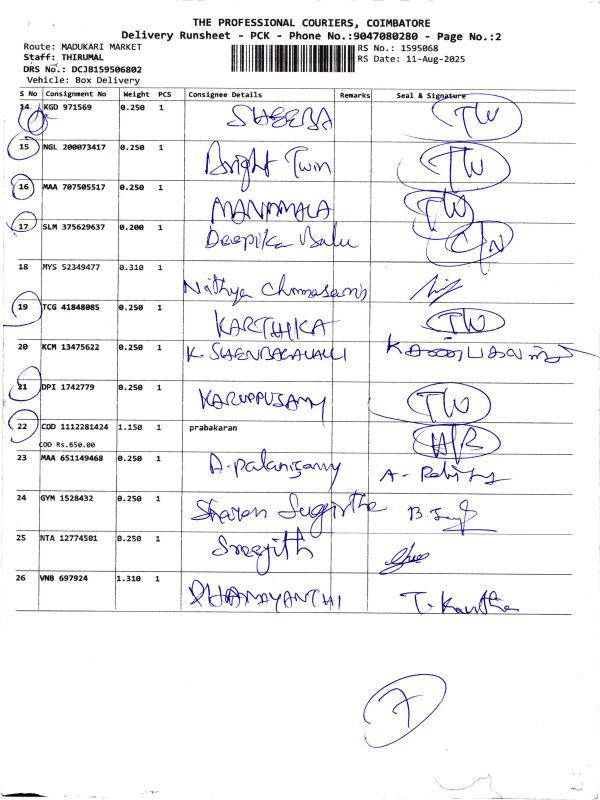 THE PROFESSIONAL COURIERS, COIMBATORE
Delivery Runsheet - PCK - Phone No.:9047080280 - Page No.:2
Route: MADUKARI MARKET
RS No.: 1595068
Staff: THIRUMAL
RS Date: 11-Aug-2025
DRS No.: DCJB159506802
Vehicle: Box Delivery
S No Consignment No Weight PCS Consignee Details Remarks Seal & Signature
14 KGD 971569 0.250 1 SHEEBA TW
15 NGL 200073417 0.250 1 Bright Twin TW
16 MAA 707505517 0.250 1 MANIMALA TW
17 SLM 375629637 0.200 1 Deepika Balu
18 MYS 52349477 0.310 1 Nithya
19 TCG 41848085 0.250 1 KARTHIKA TW
20 KCM 13475622 0.250 1 K. SHENBAGAVALLI
21 DPI 1742779 0.250 1 KARUPPUSAMY TW
22 COD 1112281424 1.150 1 prabakaran
COD Rs.650.00
23 MAA 651149468 0.250 1 A. Palanisamy A-
24 GYM 1528432 0.250 1 Sharon Sugirtha
25 NTA 12774501 0.250 1 Sreejith
26 VNB 697924 1.310 1 DHANAYANTHI T. Kavitha
7